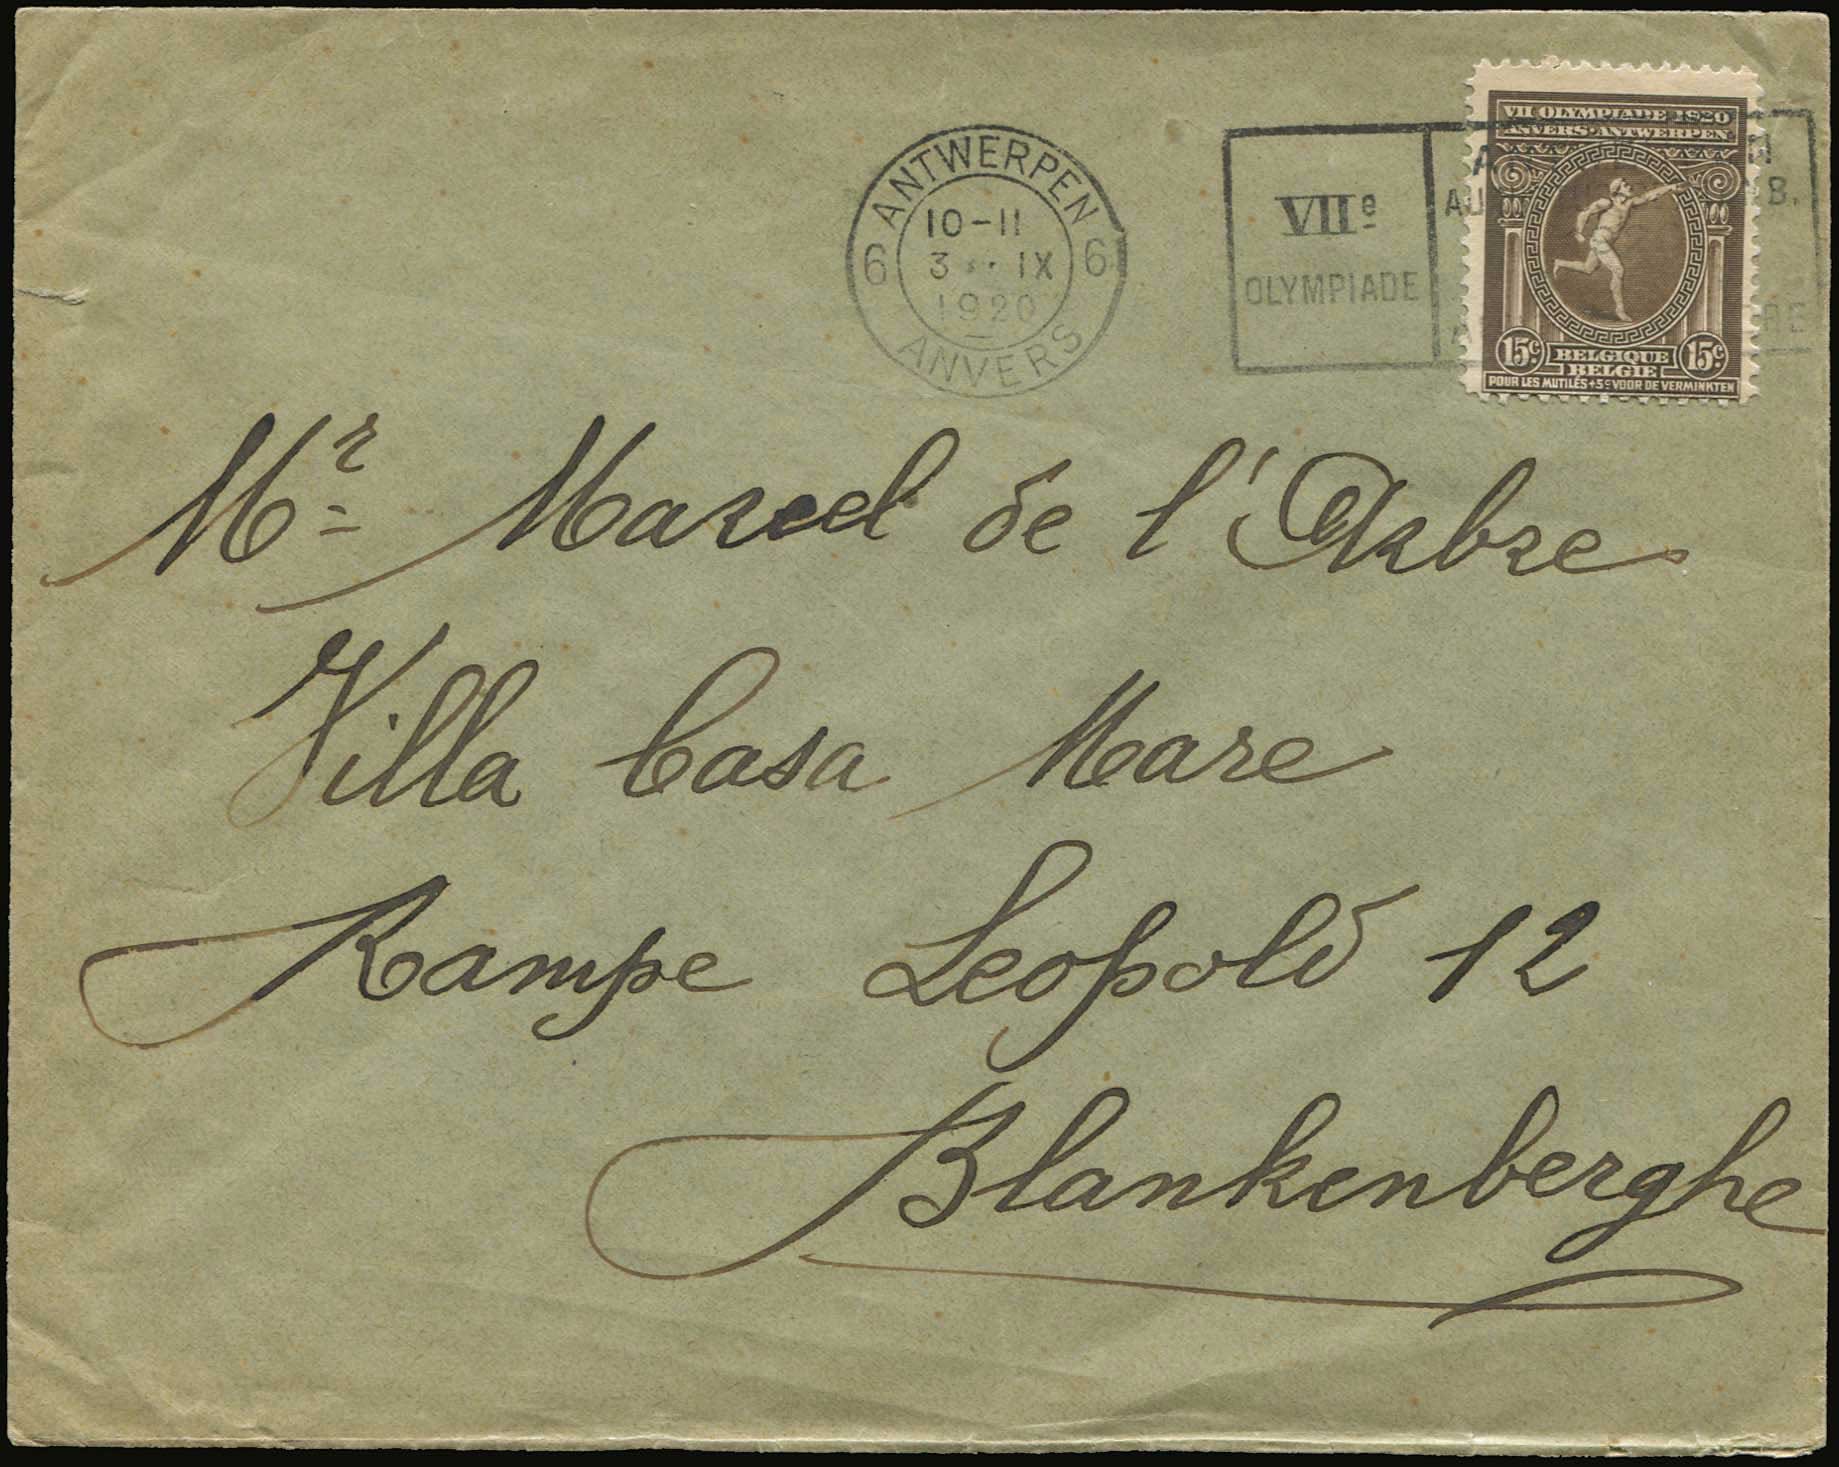 ANTWERPEN
10-11
6 3 IX 6
1920
ANVERS
VIIe
OLYMPIADE
VII OLYMPIADE 1920
ANVERS-ANTWERPEN
15c BELGIQUE 15c
BELGIE
POUR LES MUTILÉS+5c VOOR DE VERMINKTEN
Mr Marcel de l'Arbre
Villa Casa Mare
Rampe Leopold 12
Blankenberghe